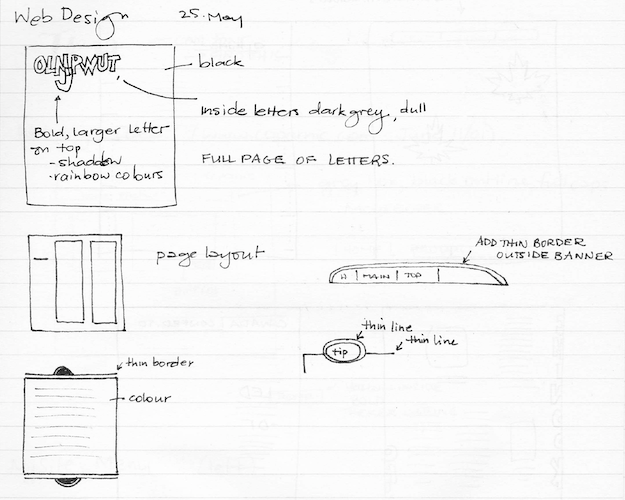 Web Design
25. May
OLNJPWUT
black
Inside letters dark grey, dull
Bold, larger letter
on top
- shaddow
- rainbow colours
FULL PAGE OF LETTERS.
page layout
ADD THIN BORDER
OUTSIDE BANNER
MAIN
TOP
thin line
thin line
tip
thin border
colour